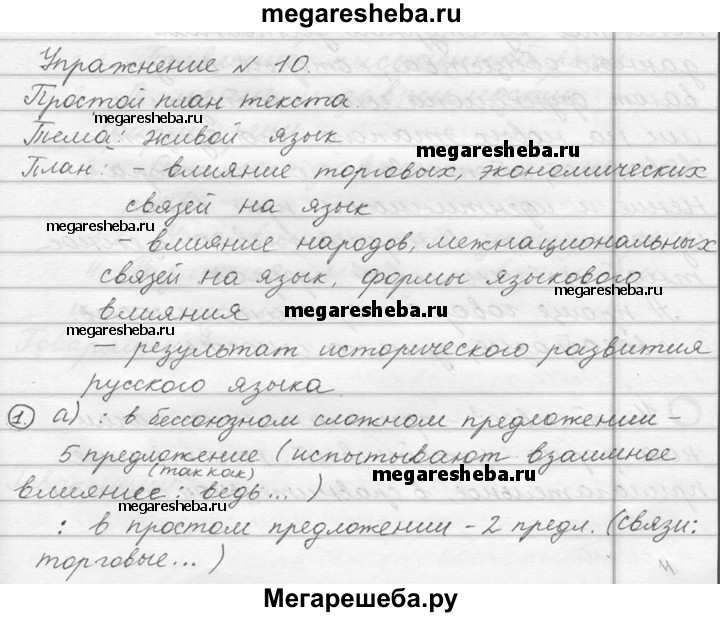 megaresheba.ru
Упражнение № 10.
Простой план текста.
megaresheba.ru
Тема: живой язык
megaresheba.ru
План: - влияние торговых, экономических
связей на язык
megaresheba.ru
- влияние народов, межнациональных
связей на язык, формы языкового
megaresheba.ru
влияния
megaresheba.ru
megaresheba.ru
- результат исторического развития
русского языка.
1. а) : в бессоюзном сложном предложении -
5 предложение (испытывают взаимное
(так как)
megaresheba.ru
влияниее : ведь... )
megaresheba.ru
: в простом предложении - 2 предл. (связи:
торговые... )
Мегарешеба.ру